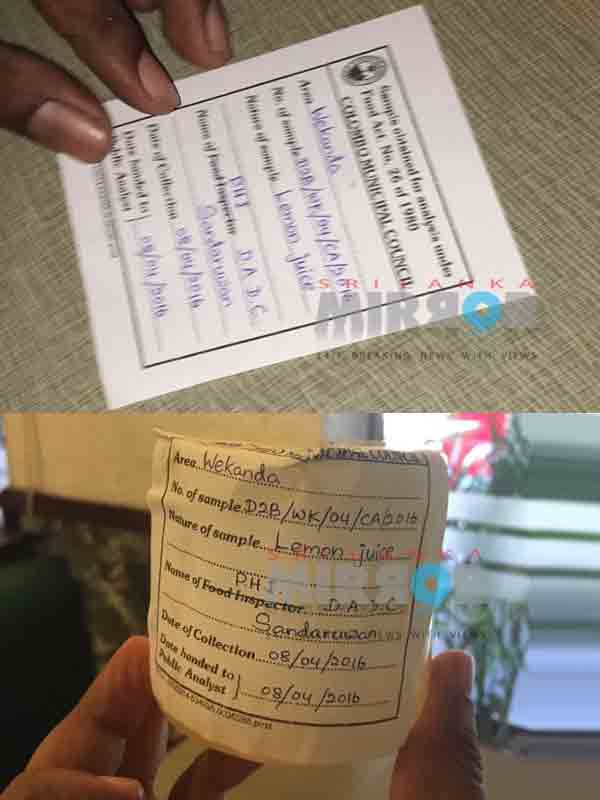 Sample obtained for analysis under
Food Act No. 26 of 1980
COLOMBO MUNICIPAL COUNCIL
Area Wekanda
No. of sample D2B/WK/04/CA/2016
Nature of sample Lemon juice
PHI
Name of Food Inspector D.A.D.C.
Gandaruwan
Date of Collection 08/04/2016
Date handed to
Public Analyst } 08/04/2016
SRI LANKA
MIRROR
24/7 BREAKING NEWS WITH VIEWS
Area Wekanda
No. of sample D2B/WK/04/CA/2016
Nature of sample Lemon juice
SRI LANKA
MIRROR
PHI
Name of Food Inspector D.A.D.C
Gandaruwan
NEWS WITH VIEWS
Date of Collection 08/04/2016
Date handed to
Public Analyst } 08/04/2016